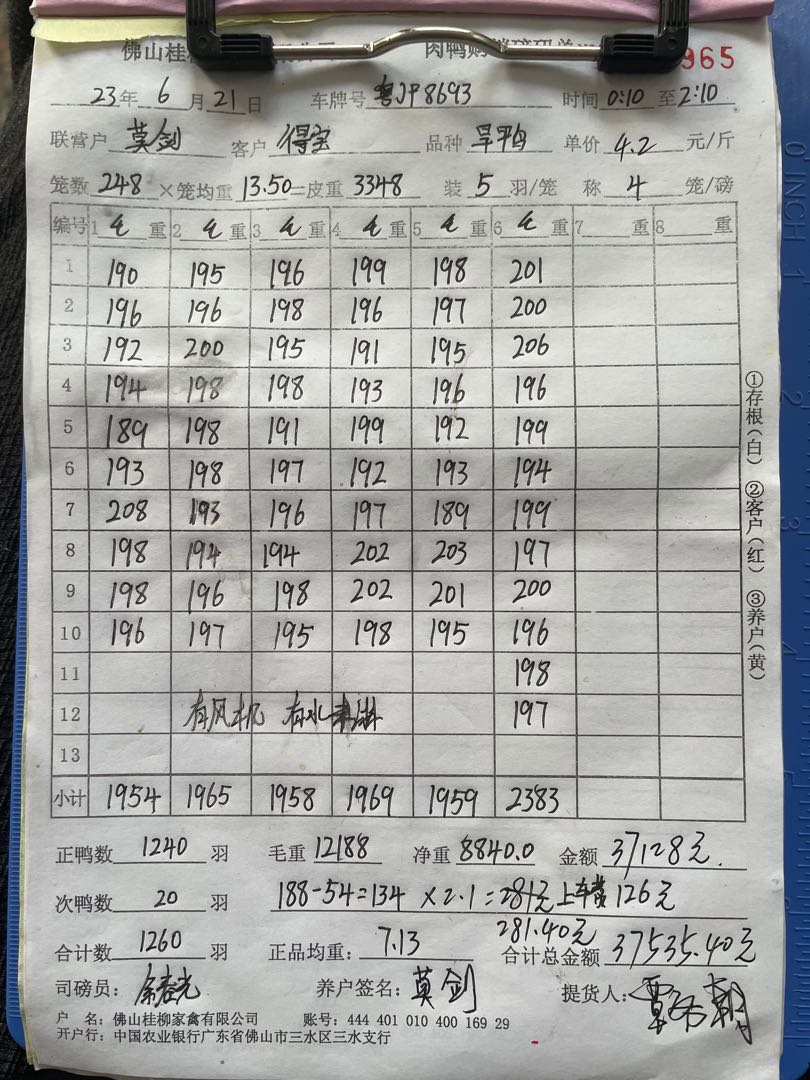 佛山桂柳 肉鸭购销磅码单 965
23年 6月 21日 车牌号 粤JP8693 时间 0:10 至 2:10
联营户 莫剑 客户 得宝 品种 旱鸭 单价 4.2 元/斤
笼数 248 ×笼均重 13.50 =皮重 3348 装 5 羽/笼 称 4 笼/磅
编号 1 毛 重 2 毛 重 3 毛 重 4 毛 重 5 毛 重 6 毛 重 7 重 8 重
1 190 195 196 199 198 201
2 196 196 198 196 197 200
3 192 200 195 191 195 206
4 194 198 198 193 196 196
5 189 198 191 199 192 199
6 193 198 197 192 193 194
7 208 193 196 197 189 199
8 198 194 194 202 203 197
9 198 196 198 202 201 200
10 196 197 195 198 195 196
11 198
12 有风机 有水 197
13
小计 1954 1965 1958 1969 1959 2383
正鸭数 1240 羽 毛重 12188 净重 8840.0 金额 37128元
次鸭数 20 羽 188-54=134 ×2.1=281元 上车费 126元
281.40元
合计数 1260 羽 正品均重: 7.13 合计总金额 37535.40元
司磅员: 养户签名: 莫剑 提货人:
户 名: 佛山桂柳家禽有限公司 账号: 444 401 010 400 169 29
开户行: 中国农业银行广东省佛山市三水区三水支行
①存根(白) ②客户(红) ③养户(黄)
0 INCH 1
2
3
4